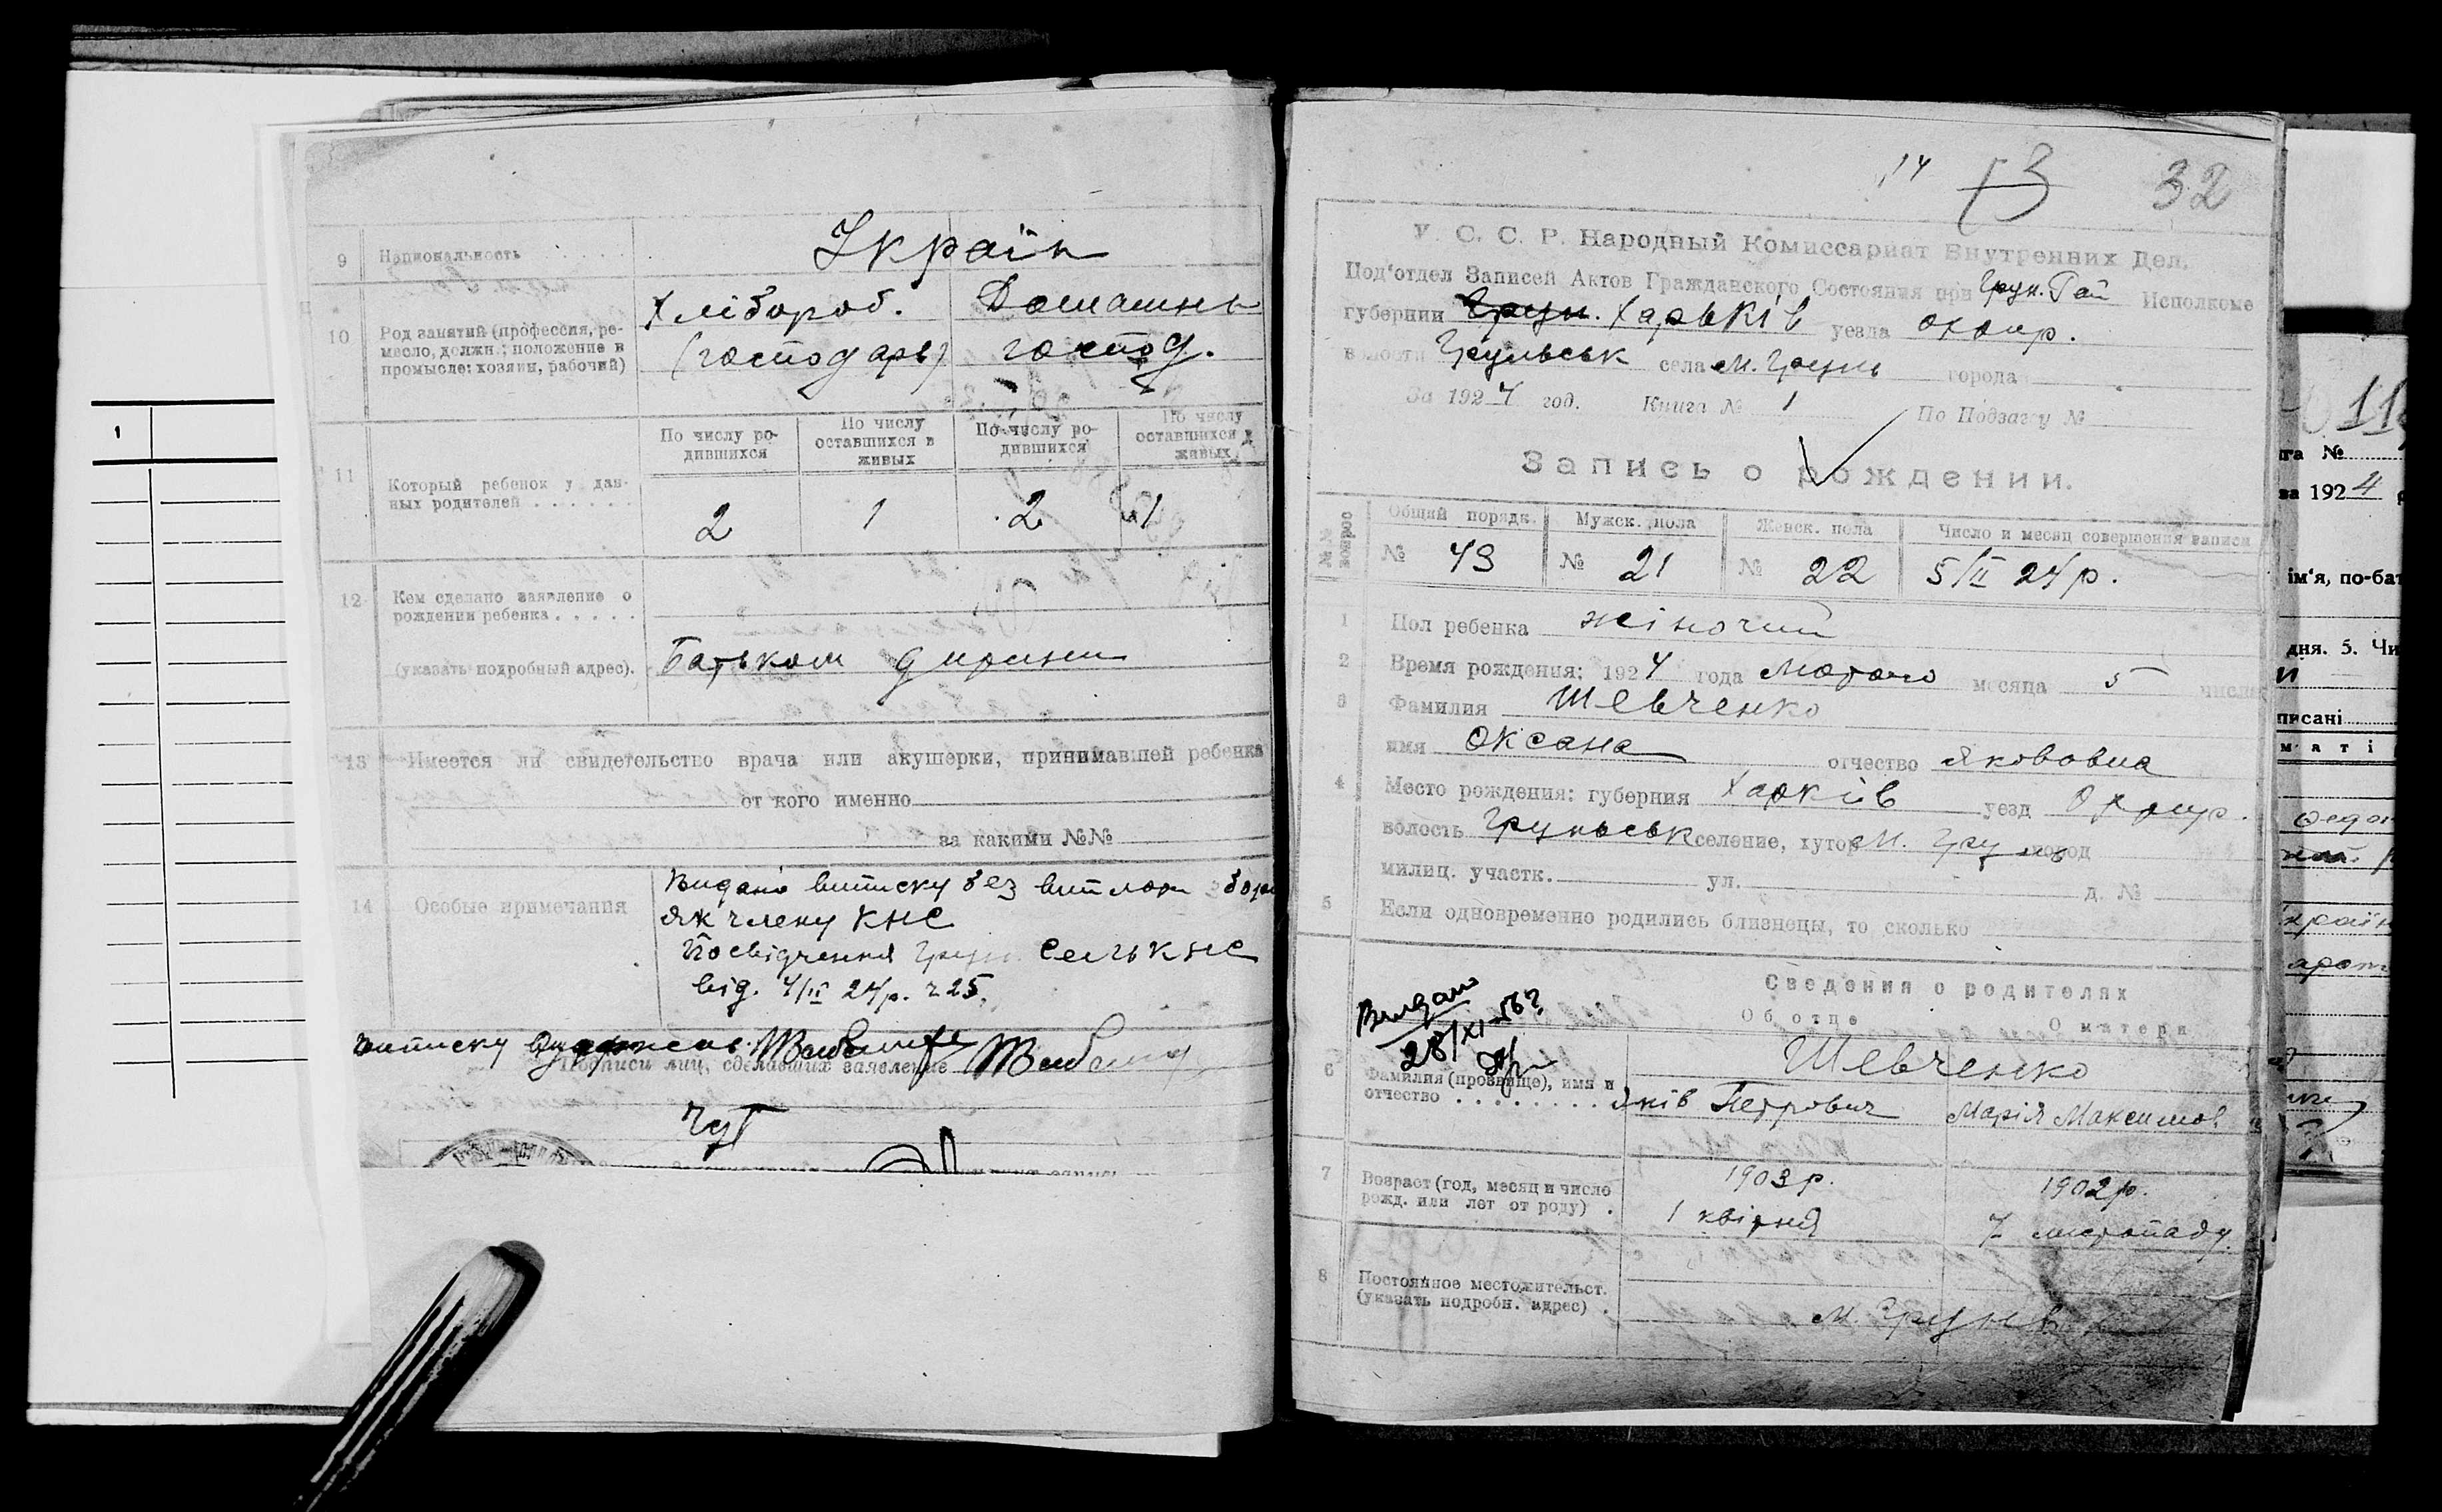 1
9 Национальность Україн
10 Род занятий (профессия, ре-
месло, должн.; положение в
промысле: хозяин, рабочий)
Хлібороб. Домашнь
(господарь) господ.
11 Который ребенок у дан-
ных родителей
По числу ро-
дившихся
По числу
оставшихся в
живых
По числу ро-
дившихся
По числу
оставшихся в
живых
2 1 2 1
12 Кем сделано заявление о
рождении ребенка
(указать подробный адрес). Батьком дитини
13 Имеется ли свидетельство врача или акушерки, принимавшей ребенка
от кого именно
за какими №№
14 Особые примечания
Видано виписку без виплати збору
як члену КНС
Посвідчення Грун. СельКНС
від. 4/II 24р. ч 25.
виписку
Подписи лиц, сделавших заявление
14 13 32
У. С. С. Р. Народный Комиссариат Внутренних Дел.
Под'отдел Записей Актов Гражданского Состояния при Грун. Рай Исполкоме
губернии Грун. Харьків уезда Охтир.
волости Груньськ села М. Грунь города
За 1924 год. Книга № 1 По Подзагу №
Запись о рождении.
№№ вопрос
Общий порядк. Мужск. пола Женск. пола Число и месяц совершения записи
№ 43 № 21 № 22 5/II 24р.
1 Пол ребенка жіночий
2 Время рождения: 1924 года Лютого месяца 5 числа
3 Фамилия Шевченко
имя Оксана отчество Якововна
4 Место рождения: губерния Харків уезд Охтир.
волость Груньськ селение, хутор М. Грунь город
милиц. участк. ул. д. №
5 Если одновременно родились близнецы, то сколько
Сведения о родителях
Об отце О матери
Видано
28/XI
6 Фамилия (прозвище), имя и
отчество
Шевченко
Яків Петрович Марія Максимов.
7 Возраст (год, месяц и число
рожд. или лет от роду)
1903р. 1902р.
1 квітня 7 листопаду
8 Постоянное местожительст.
(указать подробн. адрес)
М. Грунь
11
га №
за 1924 р
ім'я, по-бат
дня. 5. Чи
писані
маті
країн